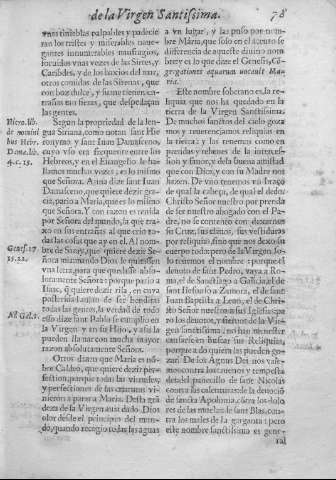 de la Virgen Santissima. 78
unas tinieblas palpables y padecie
ran los tristes y miserables naue-
gantes innumerables naufragios,
sorbidos unas vezes de las Sirtes, y
Caribdes, y de los baxios del mar,
otros comidos de las Sirenas, que
con boz dulce, y suaue tienen en-
trañas tan fieras, que despedaçan
las gentes.
Segun la propriedad de la len-
gua Siriana, como notan San Hie
ronymo y san Iuan Damasceno,
cuyo uso era frequente entre los
Hebreos, y en el Euangelio le ha-
llamos muchas vezes: es lo mismo
que Señora. Anna dize san Iuan
Damasceno, que quiere dezir gra-
cia, pario a Maria, que es lo mismo
que Señora. Y con razon es tenida
por Señora del mundo, que la tra-
xo en sus entrañas al que crio to-
das las cosas que ay en el. Al nom-
bre de Saray, que quiere dezir Se-
ñora mia
una letra, para que quedasse abso-
lutamente Señora: porque pario a
Isaac, que quiere dezir risa, en cuya
posteridad auian de ser benditas
todas las gentes, la verdad de todo
esso dize san Pablo se cumplio en
la Virgen y en su Hijo, y assi la
pueden llamar con mucha mayor
razon absolutamente Señora.
Otros dizen que Maria es nom-
bre Caldeo, que quiere dezir per-
feccion, porque todas las virtudes,
y perfecciones de las criaturas vi-
nieron a parar a Maria. Desta gran
deza de la Virgen auia dado Dios
olor desde el principio del mun-
do, quando recogio todas las aguas
Hiero. lib.
de nomini
bus Hebr.
Dama. lib.
4. c. 15.
Genes. 17
15. 22.
Ad Gal. 3.
a un lugar, y las puso por nom
bre Maria, que solo en el acento se
differencia de aqueste diuino nom-
bre: y es lo que dize el Genesis, Con
gregationes aquarum vocauit Ma-
ria.
Este nombre soberano es la re-
liquia que nos ha quedado en la
tierra de la Virgen Santissima.
De muchos santos del cielo goza
mos y reuerenciamos reliquias en
la tierra; y las tenemos como en
prendas y rehenes de la interces-
sion y amor, y de la buena amistad
que con Dios, y con su Madre nos
hazen. De uno tenemos un braço
de qual la cabeça, de qual el dedo:
Christo Señor nuestro por prenda
de ser nuestro abogado con el Pa-
dre, no se contentò con dexarnos
su Cruz, sus clauos, sus vestiduras
por reliquias, sino que nos dexo su
cuerpo todo: pero de la Virgen so-
lo tenemos el nombre: porque el
deuoto de sant Pedro, vaya a Ro-
ma, el de Santiago a Galicia, el de
sant Ilefonso a Zamora, el de sant
Iuan Baptista a Leon, el de Chris-
to Señor nuestro a sus Iglesias: pe-
ro los deuotos, y sieruos de la Vir-
gen santissima, no han menester
cansarse en buscar sus Reliquias,
porque a do quiera las pueden go-
zar. De los Agnus Dei nos vale-
mos contra los truenos y tempesta
des: del panecillo de sant Nicolas
contra las calenturas: de la deuociõ
de sancta Apolonia, contra los dolo
res de las muelas: de sant Blas, con-
tra los males de la garganta: pero
este nombre santissimo es gene-
ral